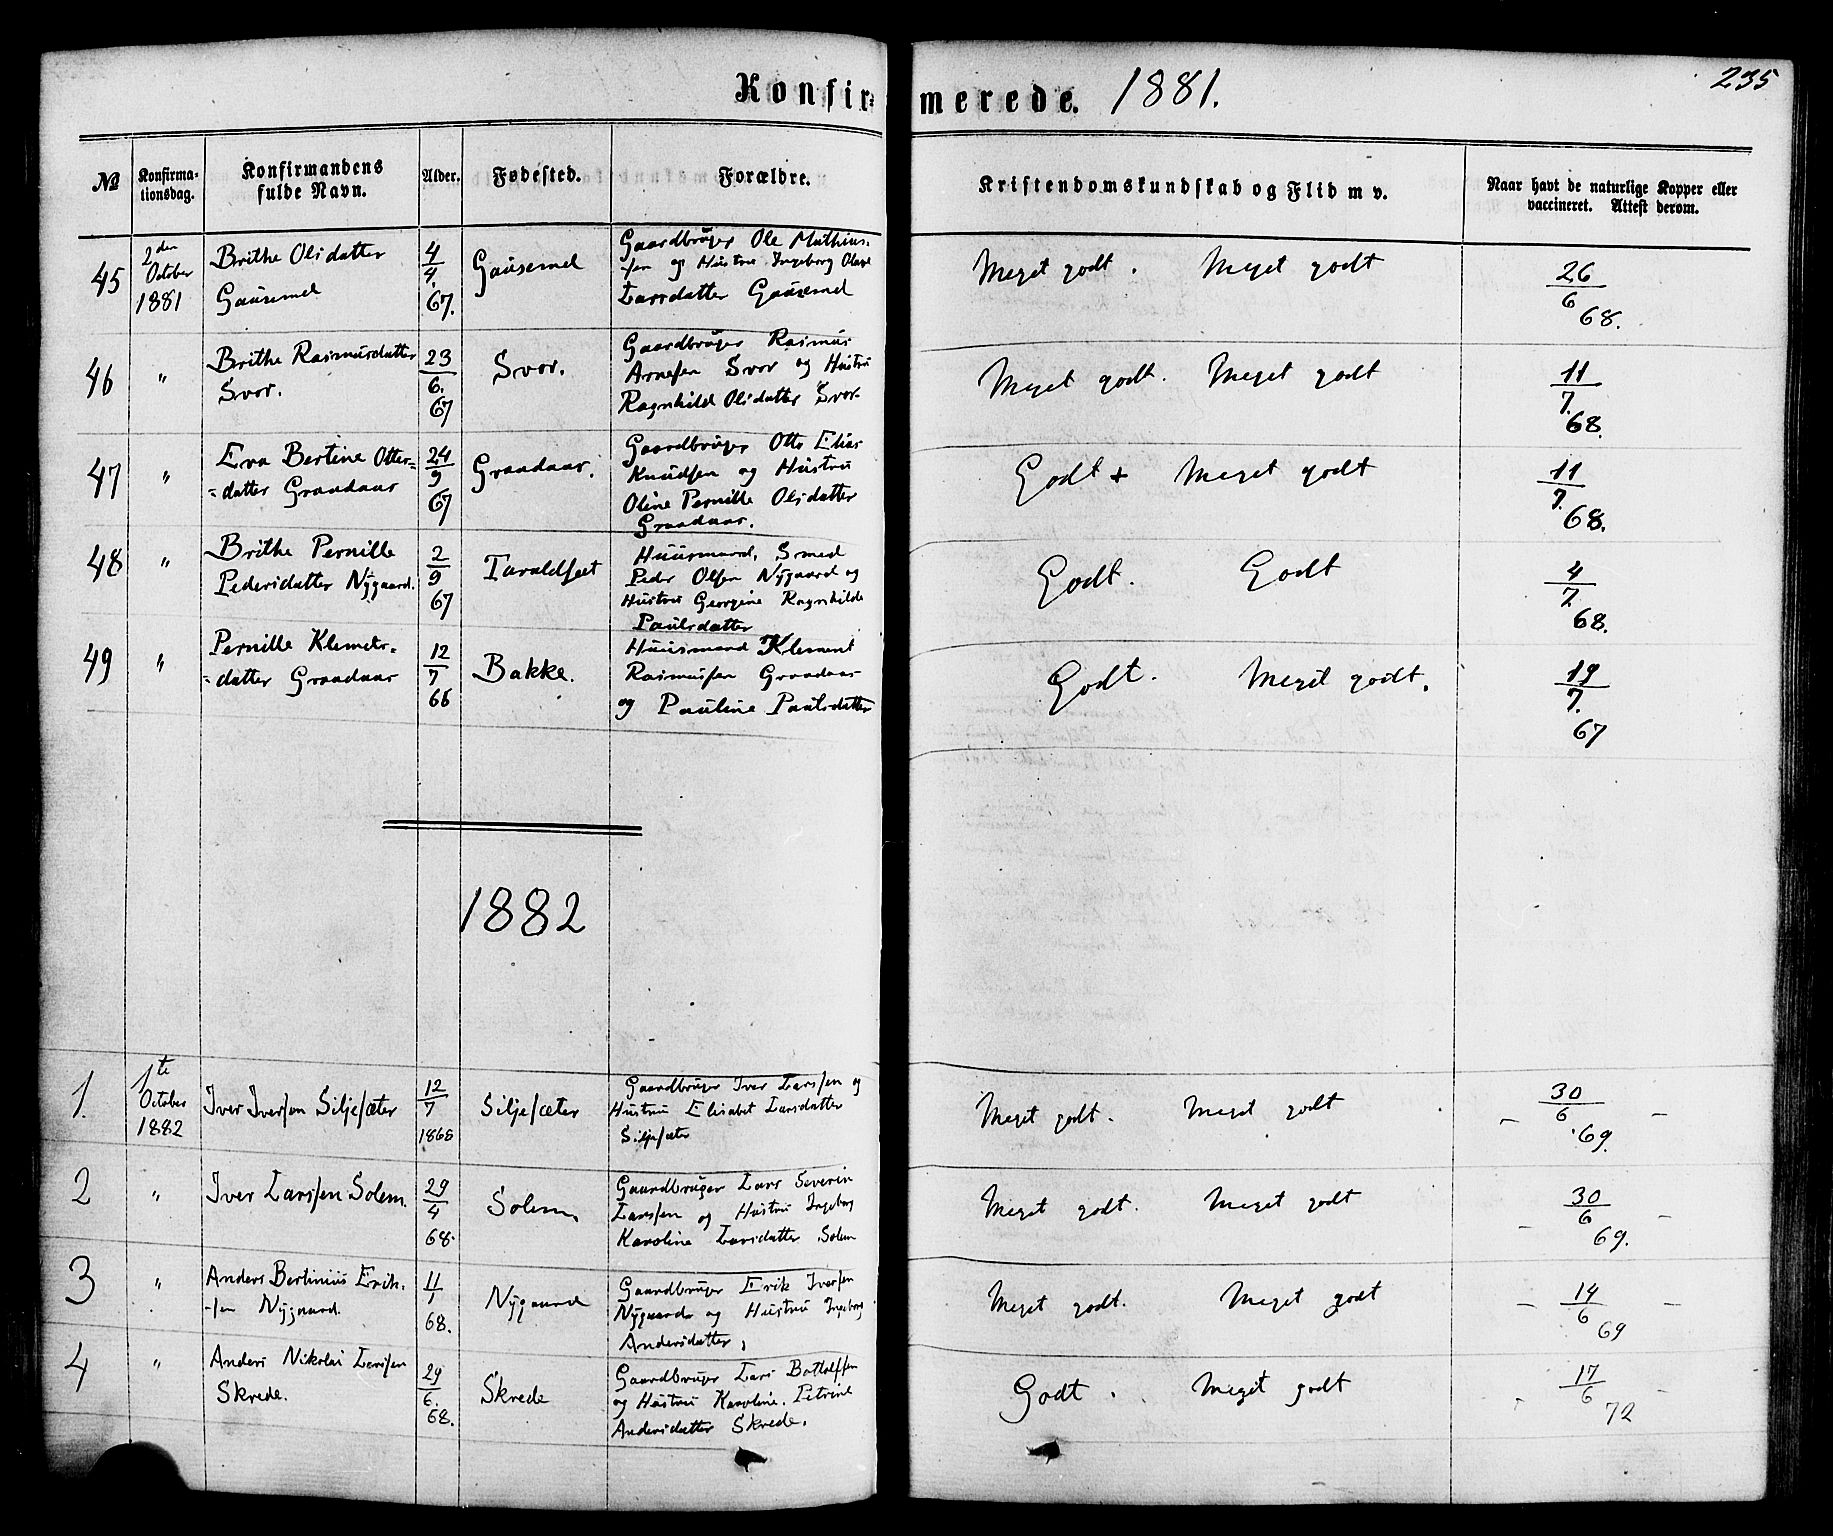 Konfir-merede. 1881.
235
№
Konfirma-
tionsdag.
Konfirmandens
fulde Navn.
Alder.
Fødested.
Forældre.
Kristendomskundskab og Flid m v.
Naar havt de naturlige Kopper eller
vaccineret. Attest derom.
45
2den
October
1881
Brithe Olsdatter
Gausemel
4/4 67.
Gausemel
Gaardbruger Ole Mathias-
sen og Hustru Ingeborg Olave
Larsdatter Gausemel
Meget godt. Meget godt
26/6 68.
46
"
Brithe Rasmusdatter
Svor.
23/6. 67
Svor.
Gaardbruger Rasmus
Arnesen Svor og Hustru
Ragnhild Olsdatter Svor
Meget godt. Meget godt
11/7. 68.
47
"
Eva Bertine Otter=
=datter Graadaas
24/9 67
Graadaas.
Gaardbruger Otto Elias
Knudsen og Hustru
Oline Pernille Olsdatter
Graadaas.
Godt + Meget godt
11/7. 68.
48
"
Brithe Pernille
Pedersdatter Nygaard.
2/9 67
Taraldset
Huusmand, Smed
Peder Olsen Nygaard og
Hustru Georgine Ragnhilde
Paulsdatter
Godt. Godt
4/7. 68.
49
"
Pernille Klemets=
=datter Graadaas
12/7 66
Bakke.
Huusmand Klement
Rasmussen Graadaas
og Pauline Paulsdatter
Godt. Meget godt.
19/7. 67
1882
1.
1te
October
1882
Iver Iversen Siljesæter
12/7 1868
Siljesæter
Gaardbruger Iver Larssen og
Hustru Elisabet Larsdatter
Siljesæter
Meget godt. Meget godt
- 30/6 69. -
2
"
Iver Larssen Solem.
29/4 68.
Solem,
Gaardbruger Lars Severin
Larssen og Hustru Ingeborg
Karoline Larsdatter Solem
Meget godt. Meget godt
- 30/6 69. -
3
"
Anders Bertinius Erik-
-sen Nygaard.
11/1 68.
Nygaard
Gaardbruger Erik Iversen
Nygaard og Hustru Ingeborg
Andersdatter,
Meget godt. Meget godt
- 14/6 69 -
4
"
Anders Nikolai Larssen
Skrede.
29/6. 68.
Skrede
Gaardbruger Lars Bottolfsen
og Hustru Karoline. Petrine
Andersdatter Skrede.
Godt. Meget godt
17/6 72 -